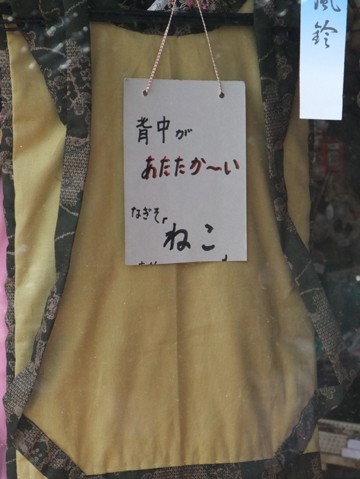 背中が
あたたか〜い
なぎそ
ねこ
風鈴